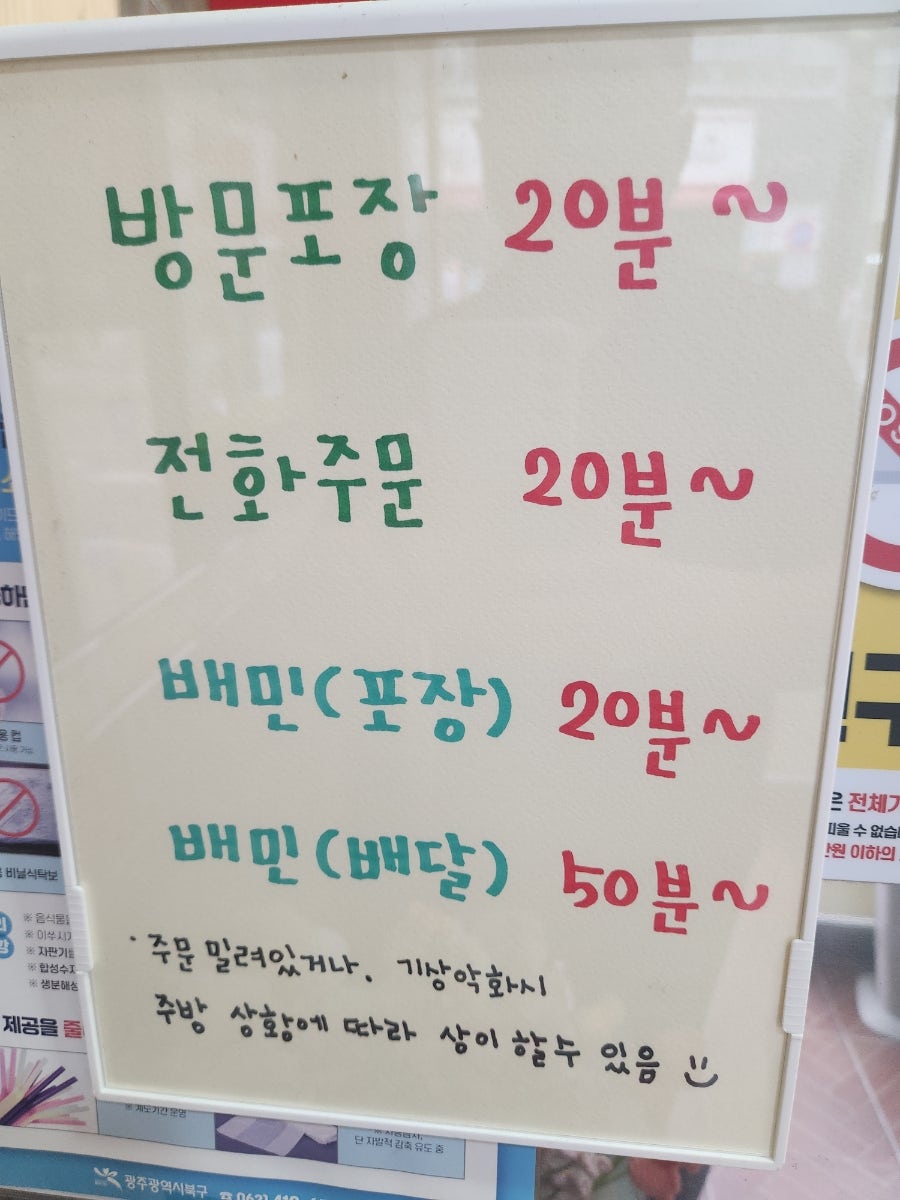 방문포장 20분~
전화주문 20분~
배민(포장) 20분~
배민(배달) 50분~
· 주문 밀려있거나, 기상악화시
주방 상황에 따라 상이 할 수 있음
비닐식탁보
※ 음식물
※ 이쑤시
※ 자판기
※ 합성수지
※ 생분해성
제공을 줄
※ 계도기간 운영
단 자발적 감축 유도 중
광주광역시북구
은 전체가
피울 수 없습
만원 이하의